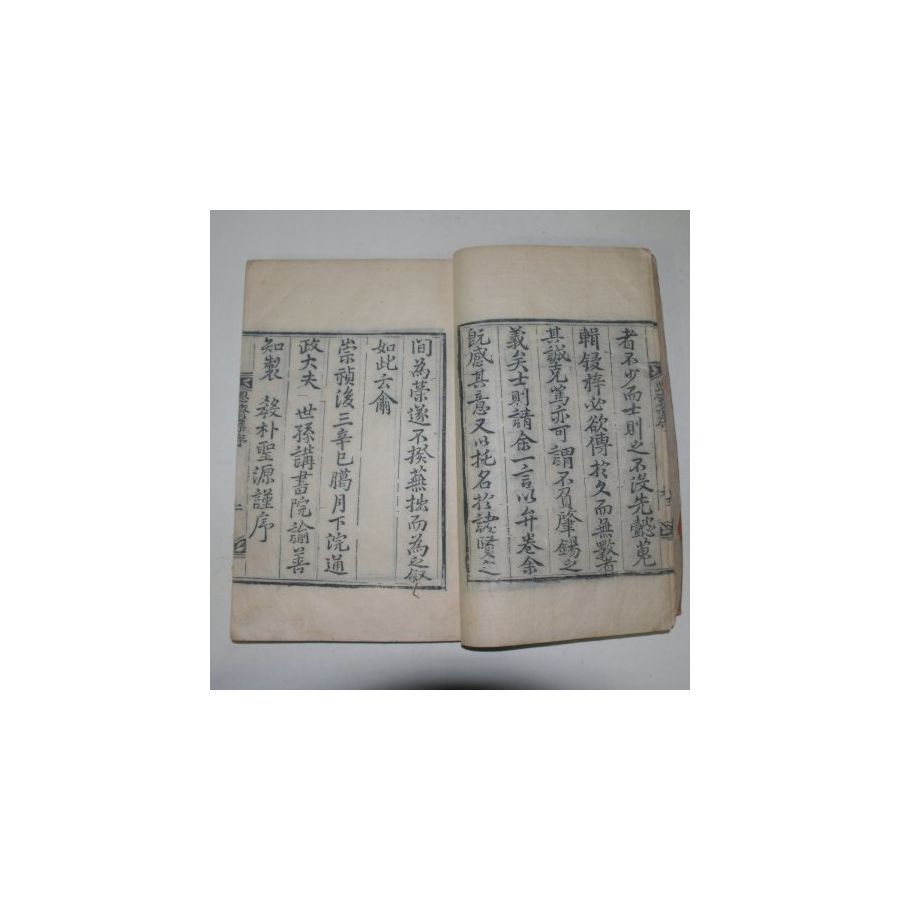 者不少而士則之不沒先懿蒐
輯鋟梓必欲傳於久而無斁者
其誠克篤亦可謂不負肇錫之
義矣士則請余一言以弁卷余
旣感其意又以托名於諸賢之
間為榮遂不揆蕪拙而為之叙
如此云爾
崇禎後三辛巳臘月下浣通
政大夫 世孫講書院諭善
知製 敎朴聖源謹序